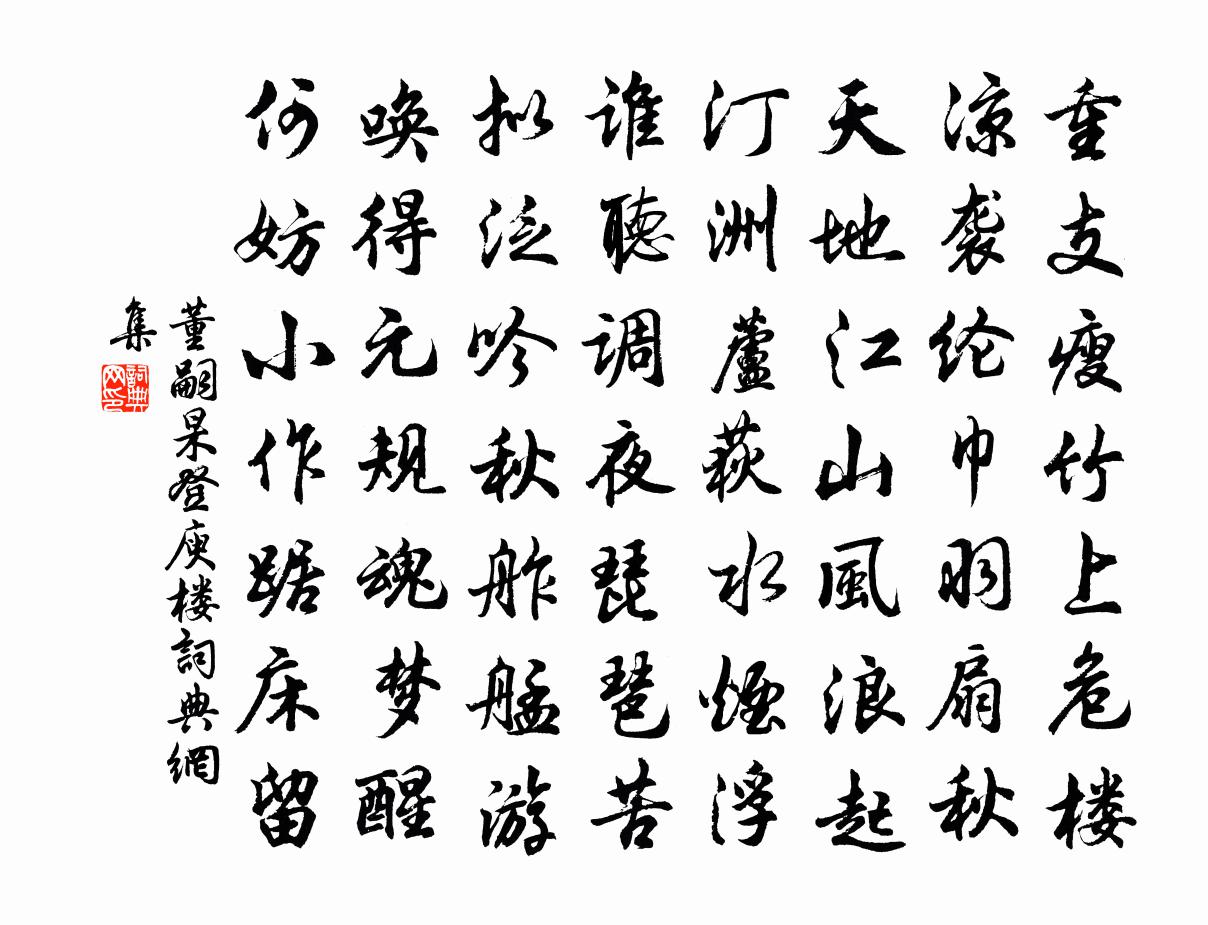 重支瘦竹上危楼
凉袭纶巾羽扇秋
天地江山風浪起
汀洲蘆荻水煙浮
谁聽调夜琵琶苦
拟泛吟秋舴艋游
唤得元规魂梦醒
何妨小作踞床留
董嗣杲登庾楼詞典網
集
詞典
网印